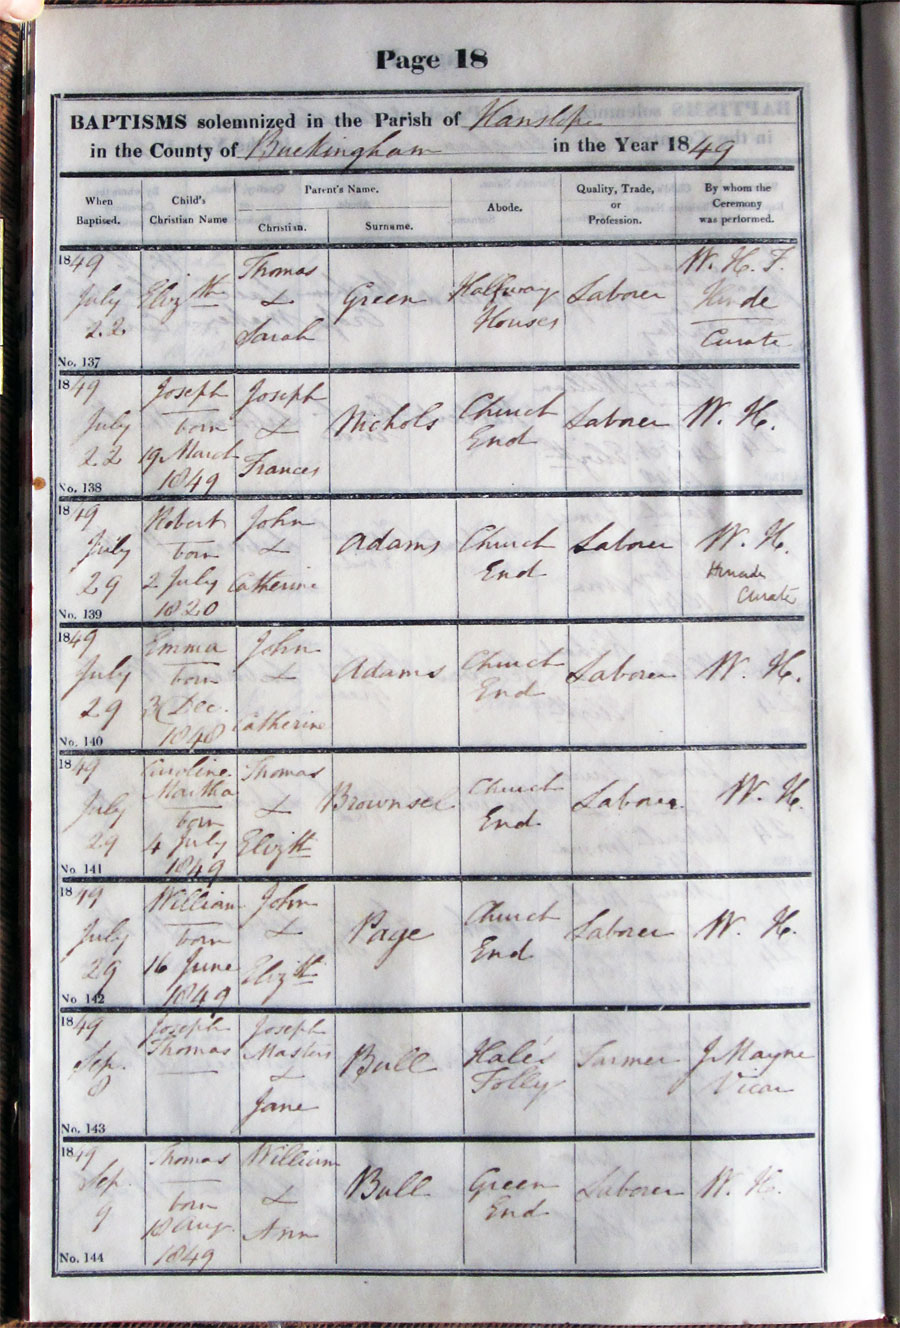 Page 18
BAPTISMS solemnized in the Parish of Hanslope
in the County of Buckingham in the Year 1849
When Baptised.
Child's Christian Name
Parent's Name.
Christian.
Surname.
Abode.
Quality, Trade, or Profession.
By whom the Ceremony was performed.
1849
July
22
No. 137
Elizth
Thomas
&
Sarah
Green
Halfway
Houses
Laborer
W. H. F.
Hinde
Curate
1849
July
22
No. 138
Joseph
born
19 March
1849
Joseph
&
Frances
Nichols
Church
End
Laborer
W. H.
1849
July
29
No. 139
Robert
born
2 July
1820
John
&
Catherine
Adams
Church
End
Laborer
W. H.
Curate
1849
July
29
No. 140
Emma
born
Dec.
1848
John
&
Catherine
Adams
Church
End
Laborer
W. H.
1849
July
29
No. 141
Caroline
Martha
born
4 July
1849
Thomas
&
Elizth
Brownsel
Church
End
Laborer
W. H.
1849
July
29
No. 142
William
born
16 June
1849
John
&
Elizth
Page
Church
End
Laborer
W. H.
1849
Sep.
No. 143
Joseph
Thomas
Joseph
Masters
&
Jane
Bull
Hale's
Folly
Farmer
J. Mayne
Vicar
1849
Sep.
9
No. 144
Thomas
born
18 Aug.
1849
William
&
Ann
Bull
Green
End
Laborer
W. H.